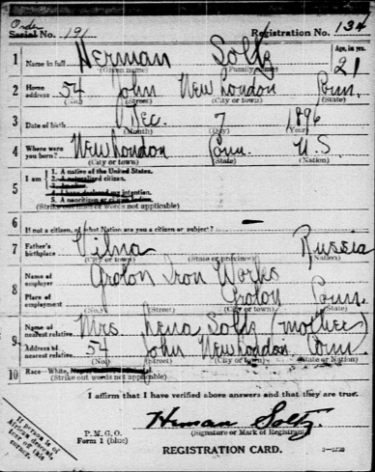 Order
Serial No. 191 Registration No. 134
1 Name in full Herman Soltz Age, in yrs. 21
(Given name) (Family name)
2 Home address 54 John New London Conn.
(No.) (Street) (City or town) (State)
3 Date of birth Dec. 7 1896
(Month) (Day) (Year)
4 Where were you born? New London Conn. U.S.
(City or town) (State) (Nation)
5 I am 1. A native of the United States.
2. A naturalized citizen.
3. An alien.
4. I have declared my intention.
5. A noncitizen or citizen
(Strike out words not applicable)
6 If not a citizen, of what Nation are you a citizen or subject? -
7 Father's birthplace Vilna Russia
(City or town) (State or province) (Nation)
8 Name of employer Groton Iron Works
Place of employment Groton Conn.
(No.) (Street) (City or town) (State)
9 Name of nearest relative Mrs. Lena Soltz (mother)
Address of nearest relative 54 John New London Conn.
(No.) (Street) (City or town) (State or Nation)
10 Race—White,
(Strike out words not applicable)
I affirm that I have verified above answers and that they are true.
P. M. G. O.
Form 1 (blue)
Herman Soltz
(Signature or Mark of Registrant)
REGISTRATION CARD.
If person is of
African descent,
tear off this
corner.